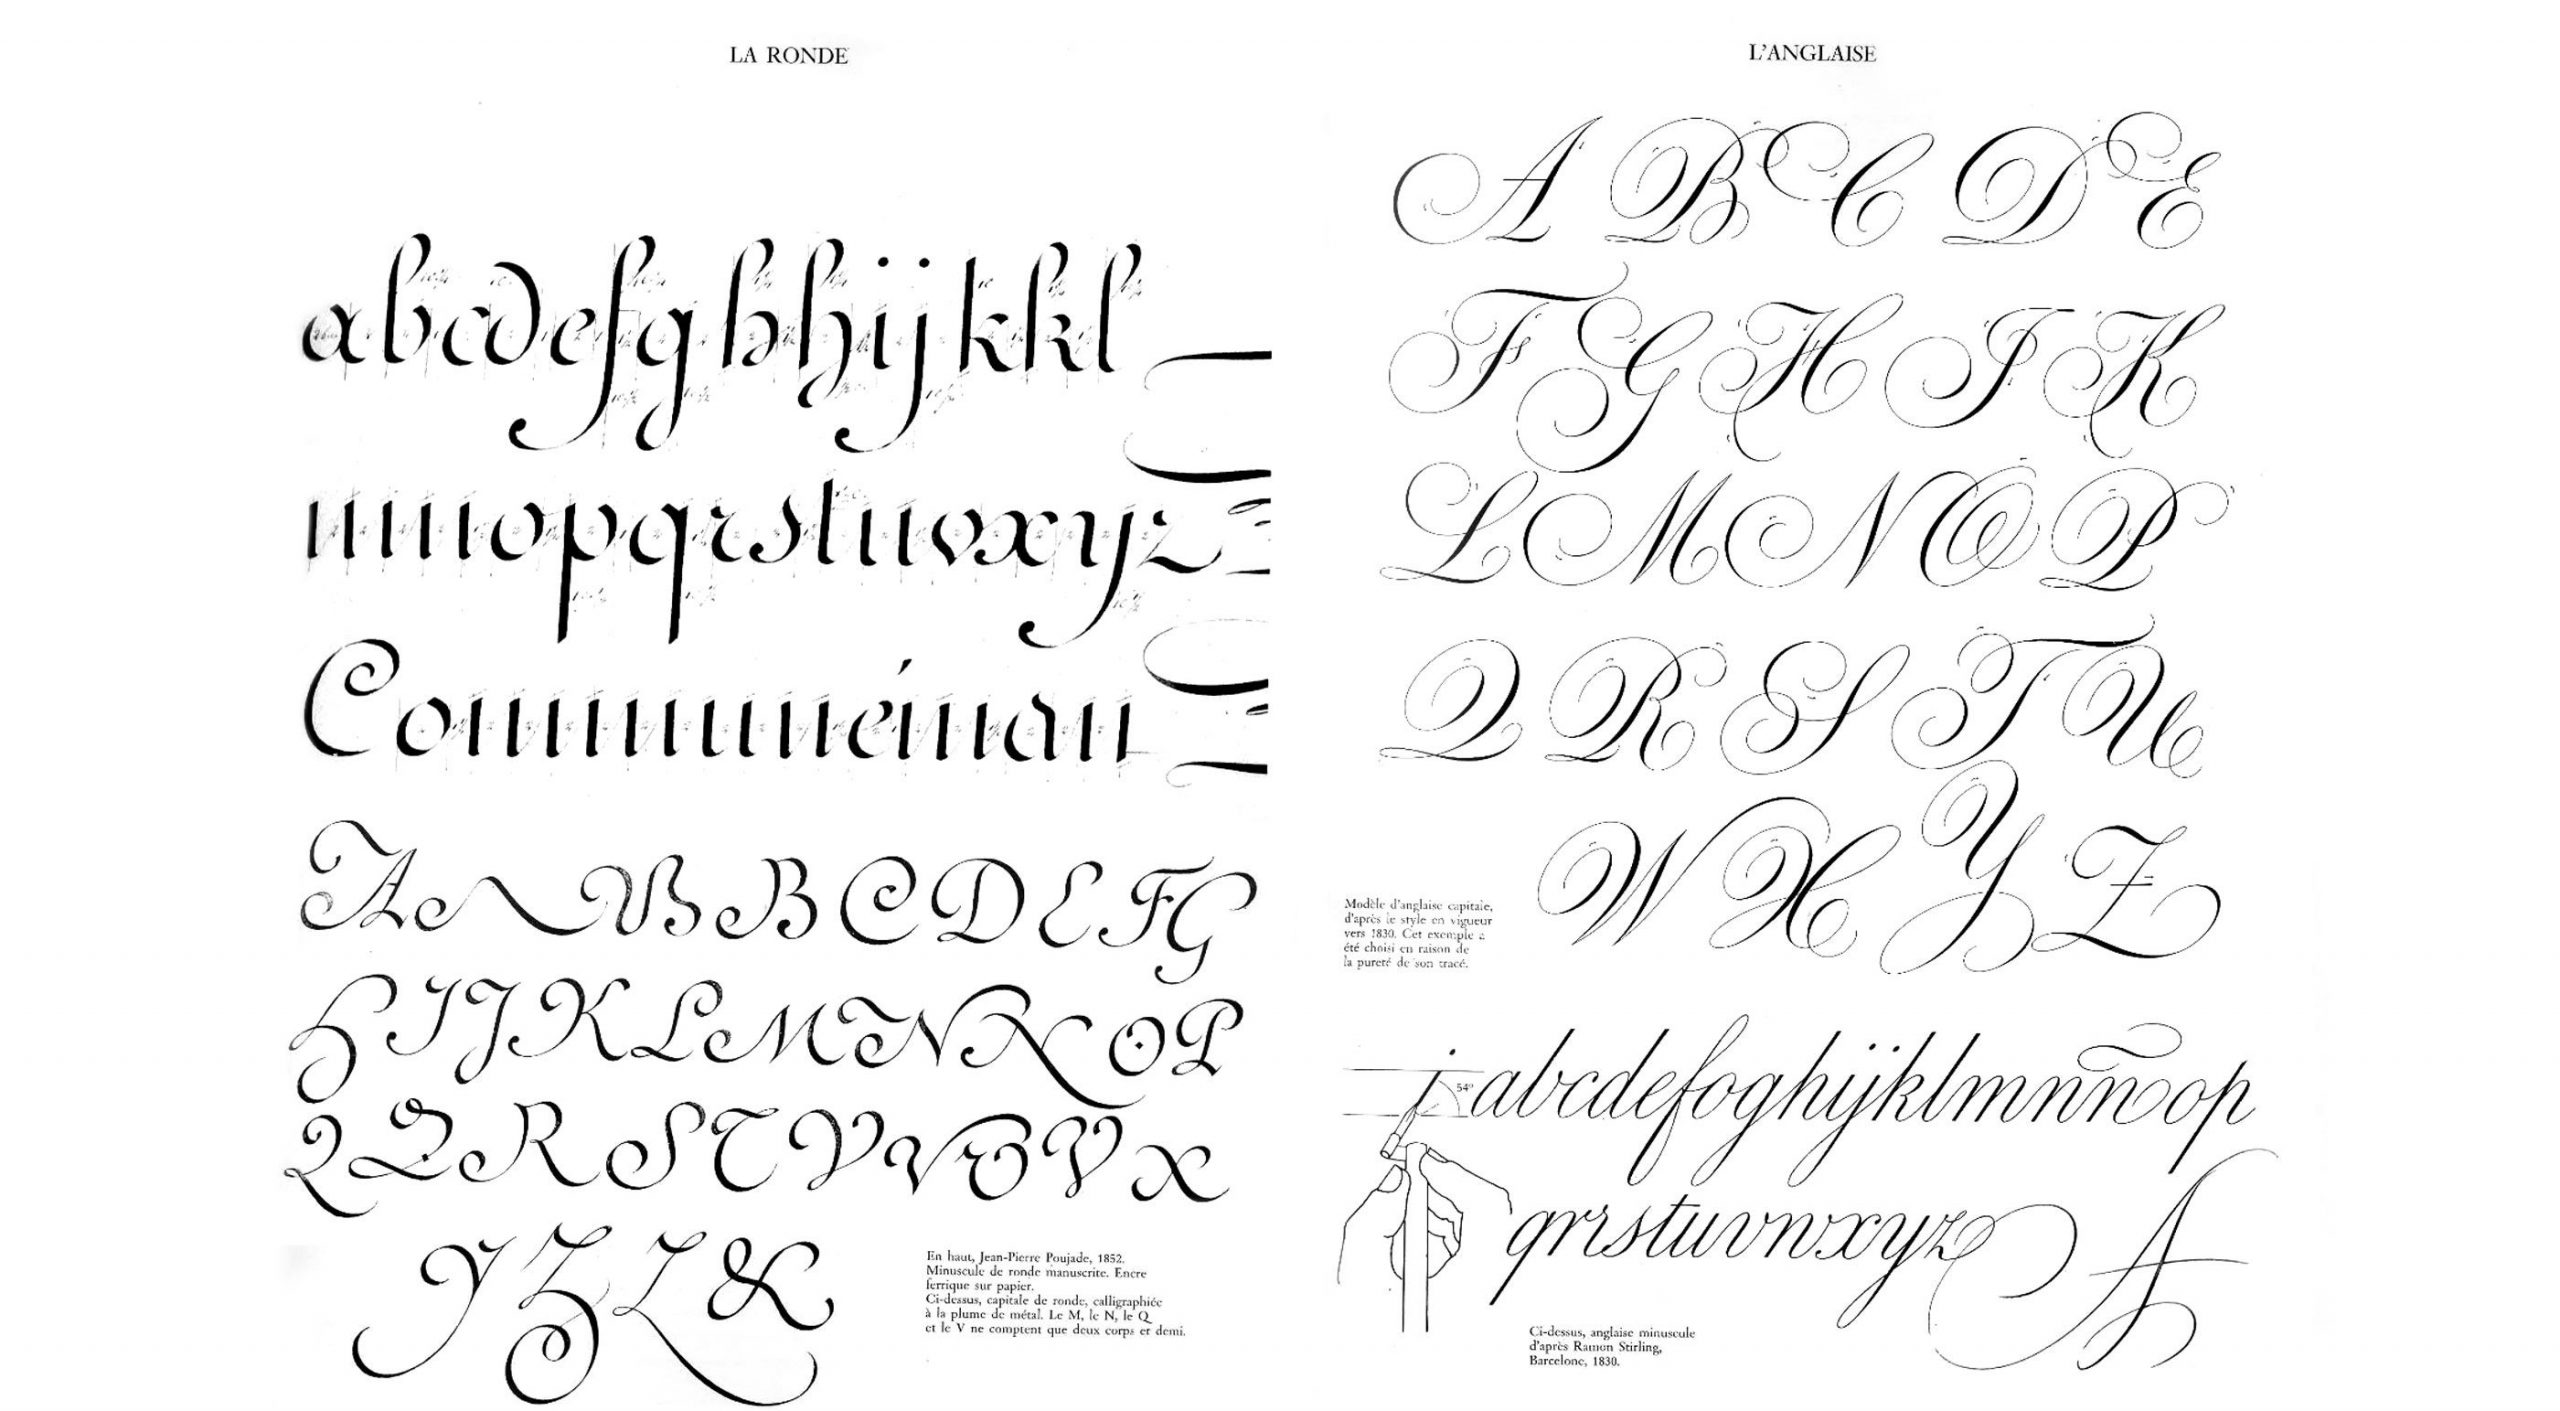 LA RONDE
abcdefghhijkkl
mnopqrstuvxyz
Communéman
A A B B C D E F G
H I J K L M N N O P
Q Q R S T V V V V X
Y Z Z &
En haut, Jean-Pierre Poujade, 1852.
Minuscule de ronde manuscrite. Encre
ferrique sur papier.
Ci-dessus, capitale de ronde, calligraphiée
à la plume de métal. Le M, le N, le Q
et le V ne comptent que deux corps et demi.
L'ANGLAISE
A B C D E
F G H I K
L M N O P
Q R S T U
W X Y Z
Modèle d'anglaise capitale,
d'après le style en vigueur
vers 1830. Cet exemple a
été choisi en raison de
la pureté de son tracé.
i 54° abcdefoghijklmnñop
qrrstuvnxyz A
Ci-dessus, anglaise minuscule
d'après Ramon Stirling,
Barcelone, 1830.